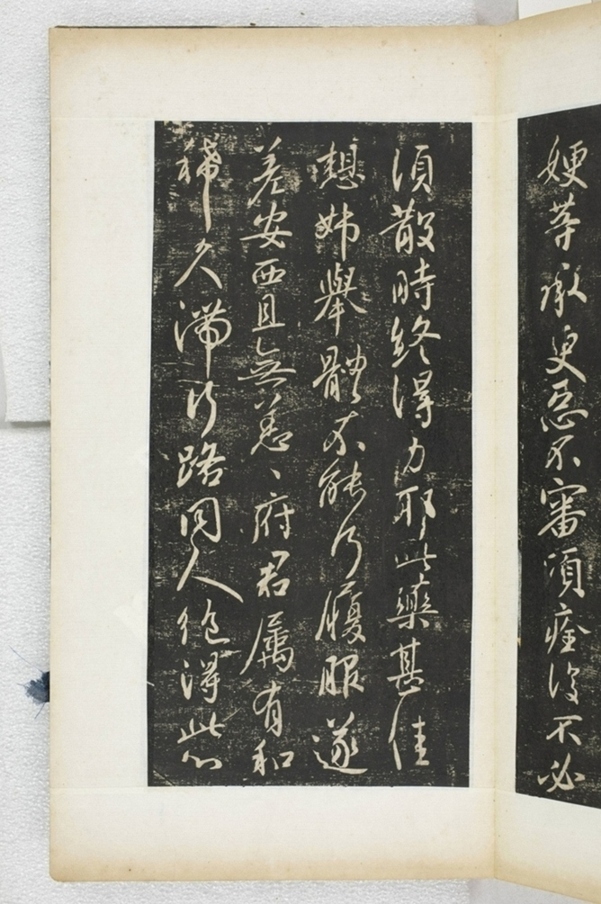 嫂等承更惡不審須痊復不必
須散時終得力耶此藥甚佳
想姊舉體不能行履服遂
差安西且無恙〻府君屬有和
稀久滯行路同人絶得此心